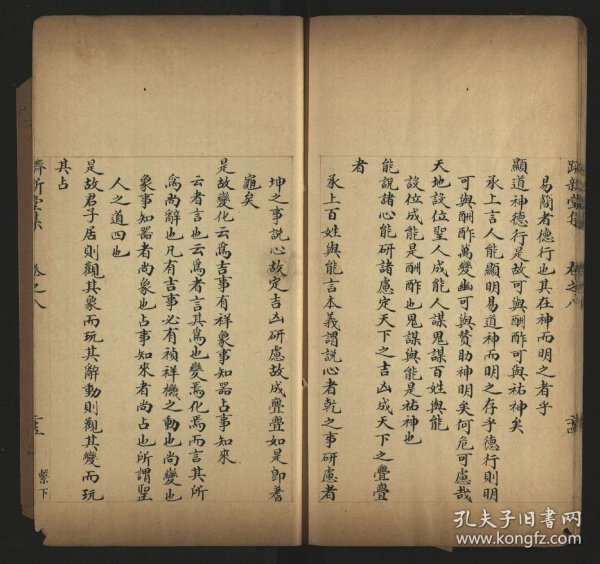 易簡者德行也其在神而明之者乎
顯道神德行是故可與酬酢可與祐神矣
承上言人能顯明易道神而明之存乎德行則明
可與酬酢萬變幽可與贊助神明矣何危可慮哉
天地設位聖人成能人謀鬼謀百姓與能
設位成能是酬酢也鬼謀與能是祐神也
能説諸心能研諸慮定天下之吉凶成天下之亹亹
者
承上百姓與能言本義謂説心者乾之事研慮者
坤之事説心故定吉凶研慮故成亹亹如是即蓍
龜矣
是故變化云為吉事有祥象事知器占事知來
云者言也云為者言其為也變焉化焉而言其所
為尚辭也凡有吉事必有禎祥機之動也尚變也
象事知器者尚象也占事知來者尚占也所謂聖
人之道四也
是故君子居則觀其象而玩其辭動則觀其變而玩
其占
齋新堂集 卷之八 繫下
孔夫子旧书网
www.kongfz.com